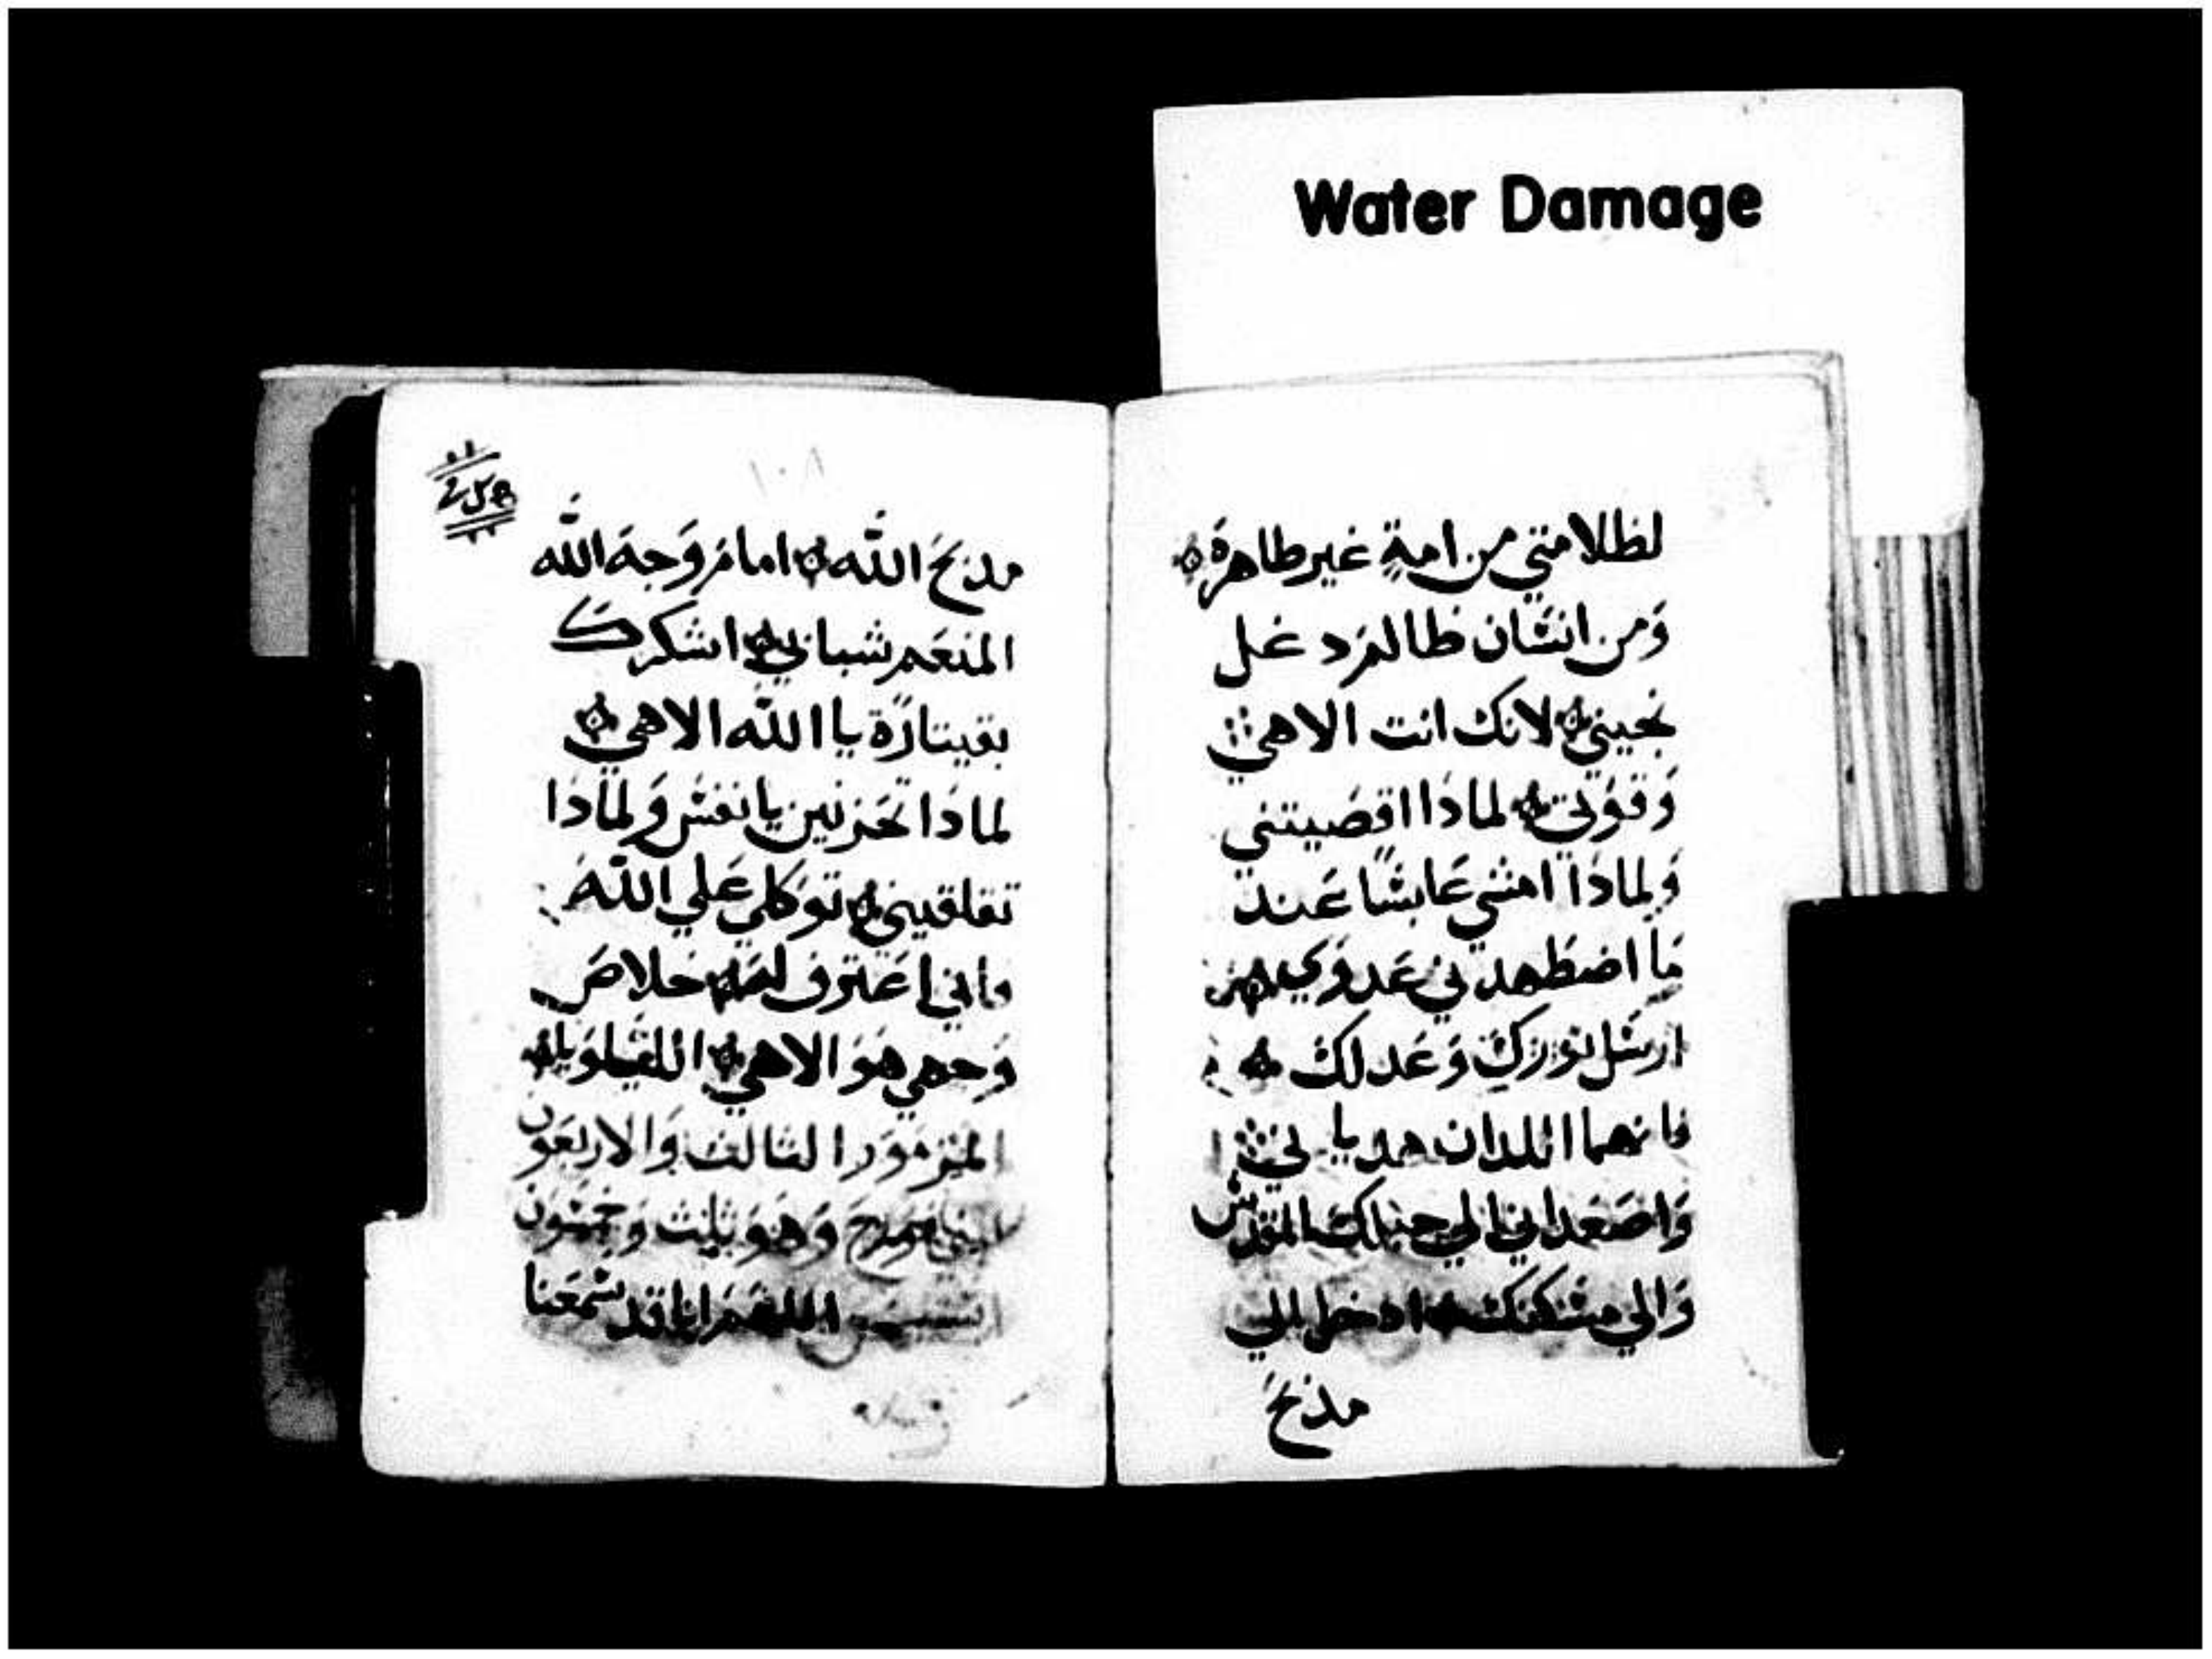 Water Damage
لظلامتي من امةٍ غير طاهرَة
وَمن انسَان ظالمرَد غل
نجيني لانك انت الاهي
وَقوَتي لماذا اقصَيتني
وَلماذا امشي عَابسًا عَند
مَا اضطهدني عَدوَي
ارسَل نورَكَ وَعَدلك
فانهما اللدان هديا ني
وَاصَعداني الي جبلك المقدس
وَالي مسَكنك ادخل الي
مذبحَ
١٠٨
مذبحَ الله امامَ وَجهَ الله
المنعَم شبابي اشكرك
بقيتارَة يا الله الاهي
لماذا تحَزنين يا نفسَ وَلماذا
تقلقيني توَكلي عَلي الله
فاني اعَترف لهَ خلاصَ
وَجهي هوَ الاهي الليلوَيا
المزموَر الثالث وَالاربعَوَن
وَهوَ وَخمسَوَن
اللهمَ اننا قد سَمعَنا